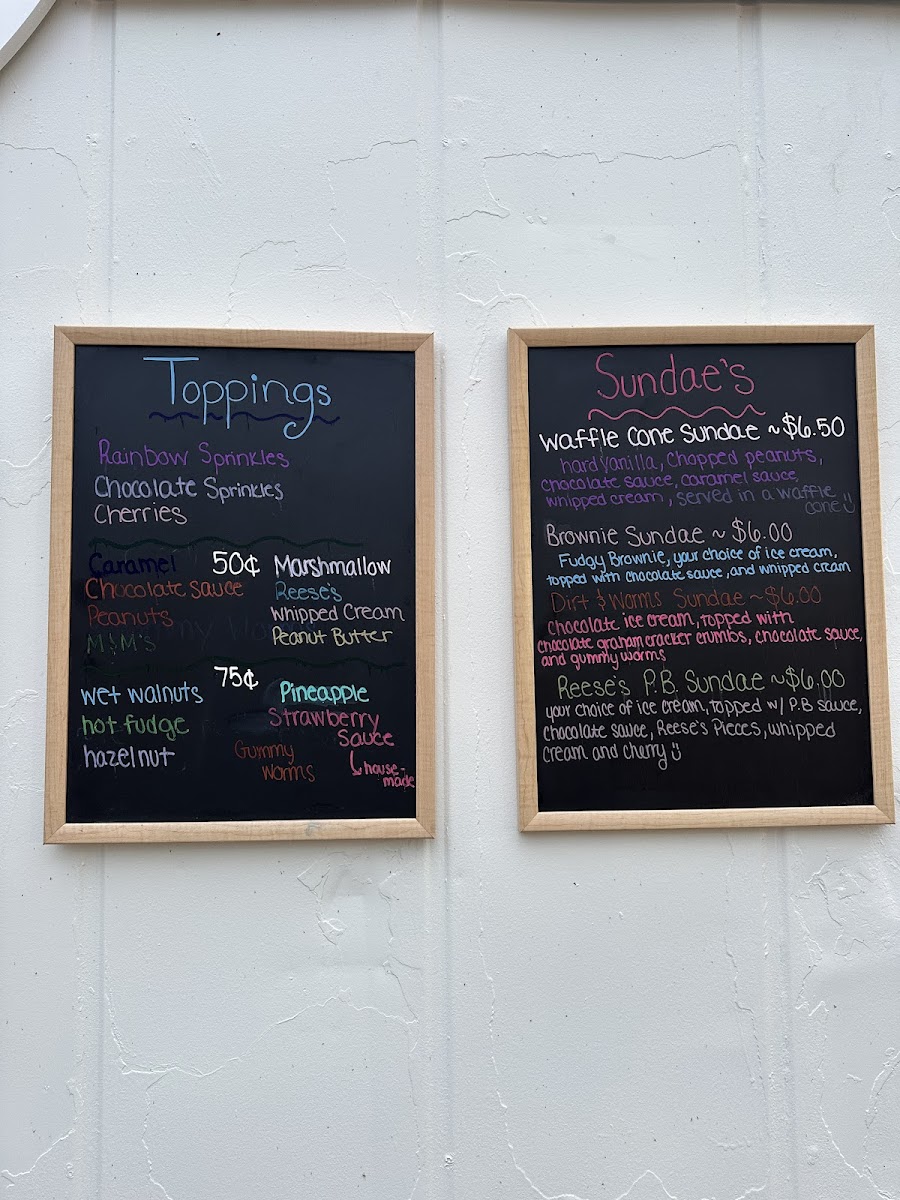 Toppings
Rainbow Sprinkles
Chocolate Sprinkles
Cherries
Caramel 50¢ Marshmallow
Chocolate sauce Reese's
Peanuts Whipped Cream
M&M's Peanut Butter
75¢
wet walnuts Pineapple
hot fudge Strawberry
Sauce
hazelnut Gummy
Worms
house-
made
Sundae's
Waffle Cone Sundae ~ $6.50
hard Vanilla, Chopped peanuts,
chocolate sauce, caramel sauce,
whipped cream, served in a waffle
cone
Brownie Sundae ~ $6.00
Fudgy Brownie, your choice of ice cream,
topped with chocolate sauce, and whipped cream
Dirt & Worms Sundae ~ $6.00
chocolate ice cream, topped with
chocolate graham cracker crumbs, chocolate sauce,
and gummy worms
Reese's P.B. Sundae ~ $6.00
your choice of ice cream, topped w/ P.B sauce,
chocolate sauce, Reese's Pieces, whipped
cream and cherry